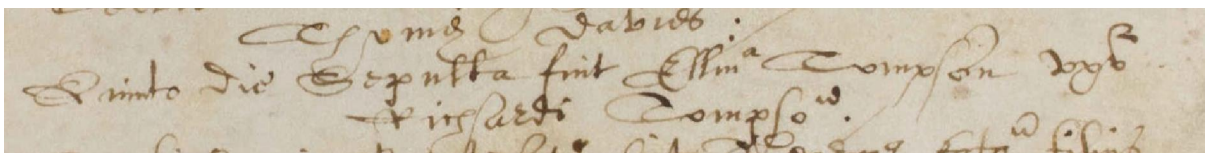 Thome Davies.
Quinto die Sepulta fuit Ellina Tompson vxor
Richardi Tompson.
filius